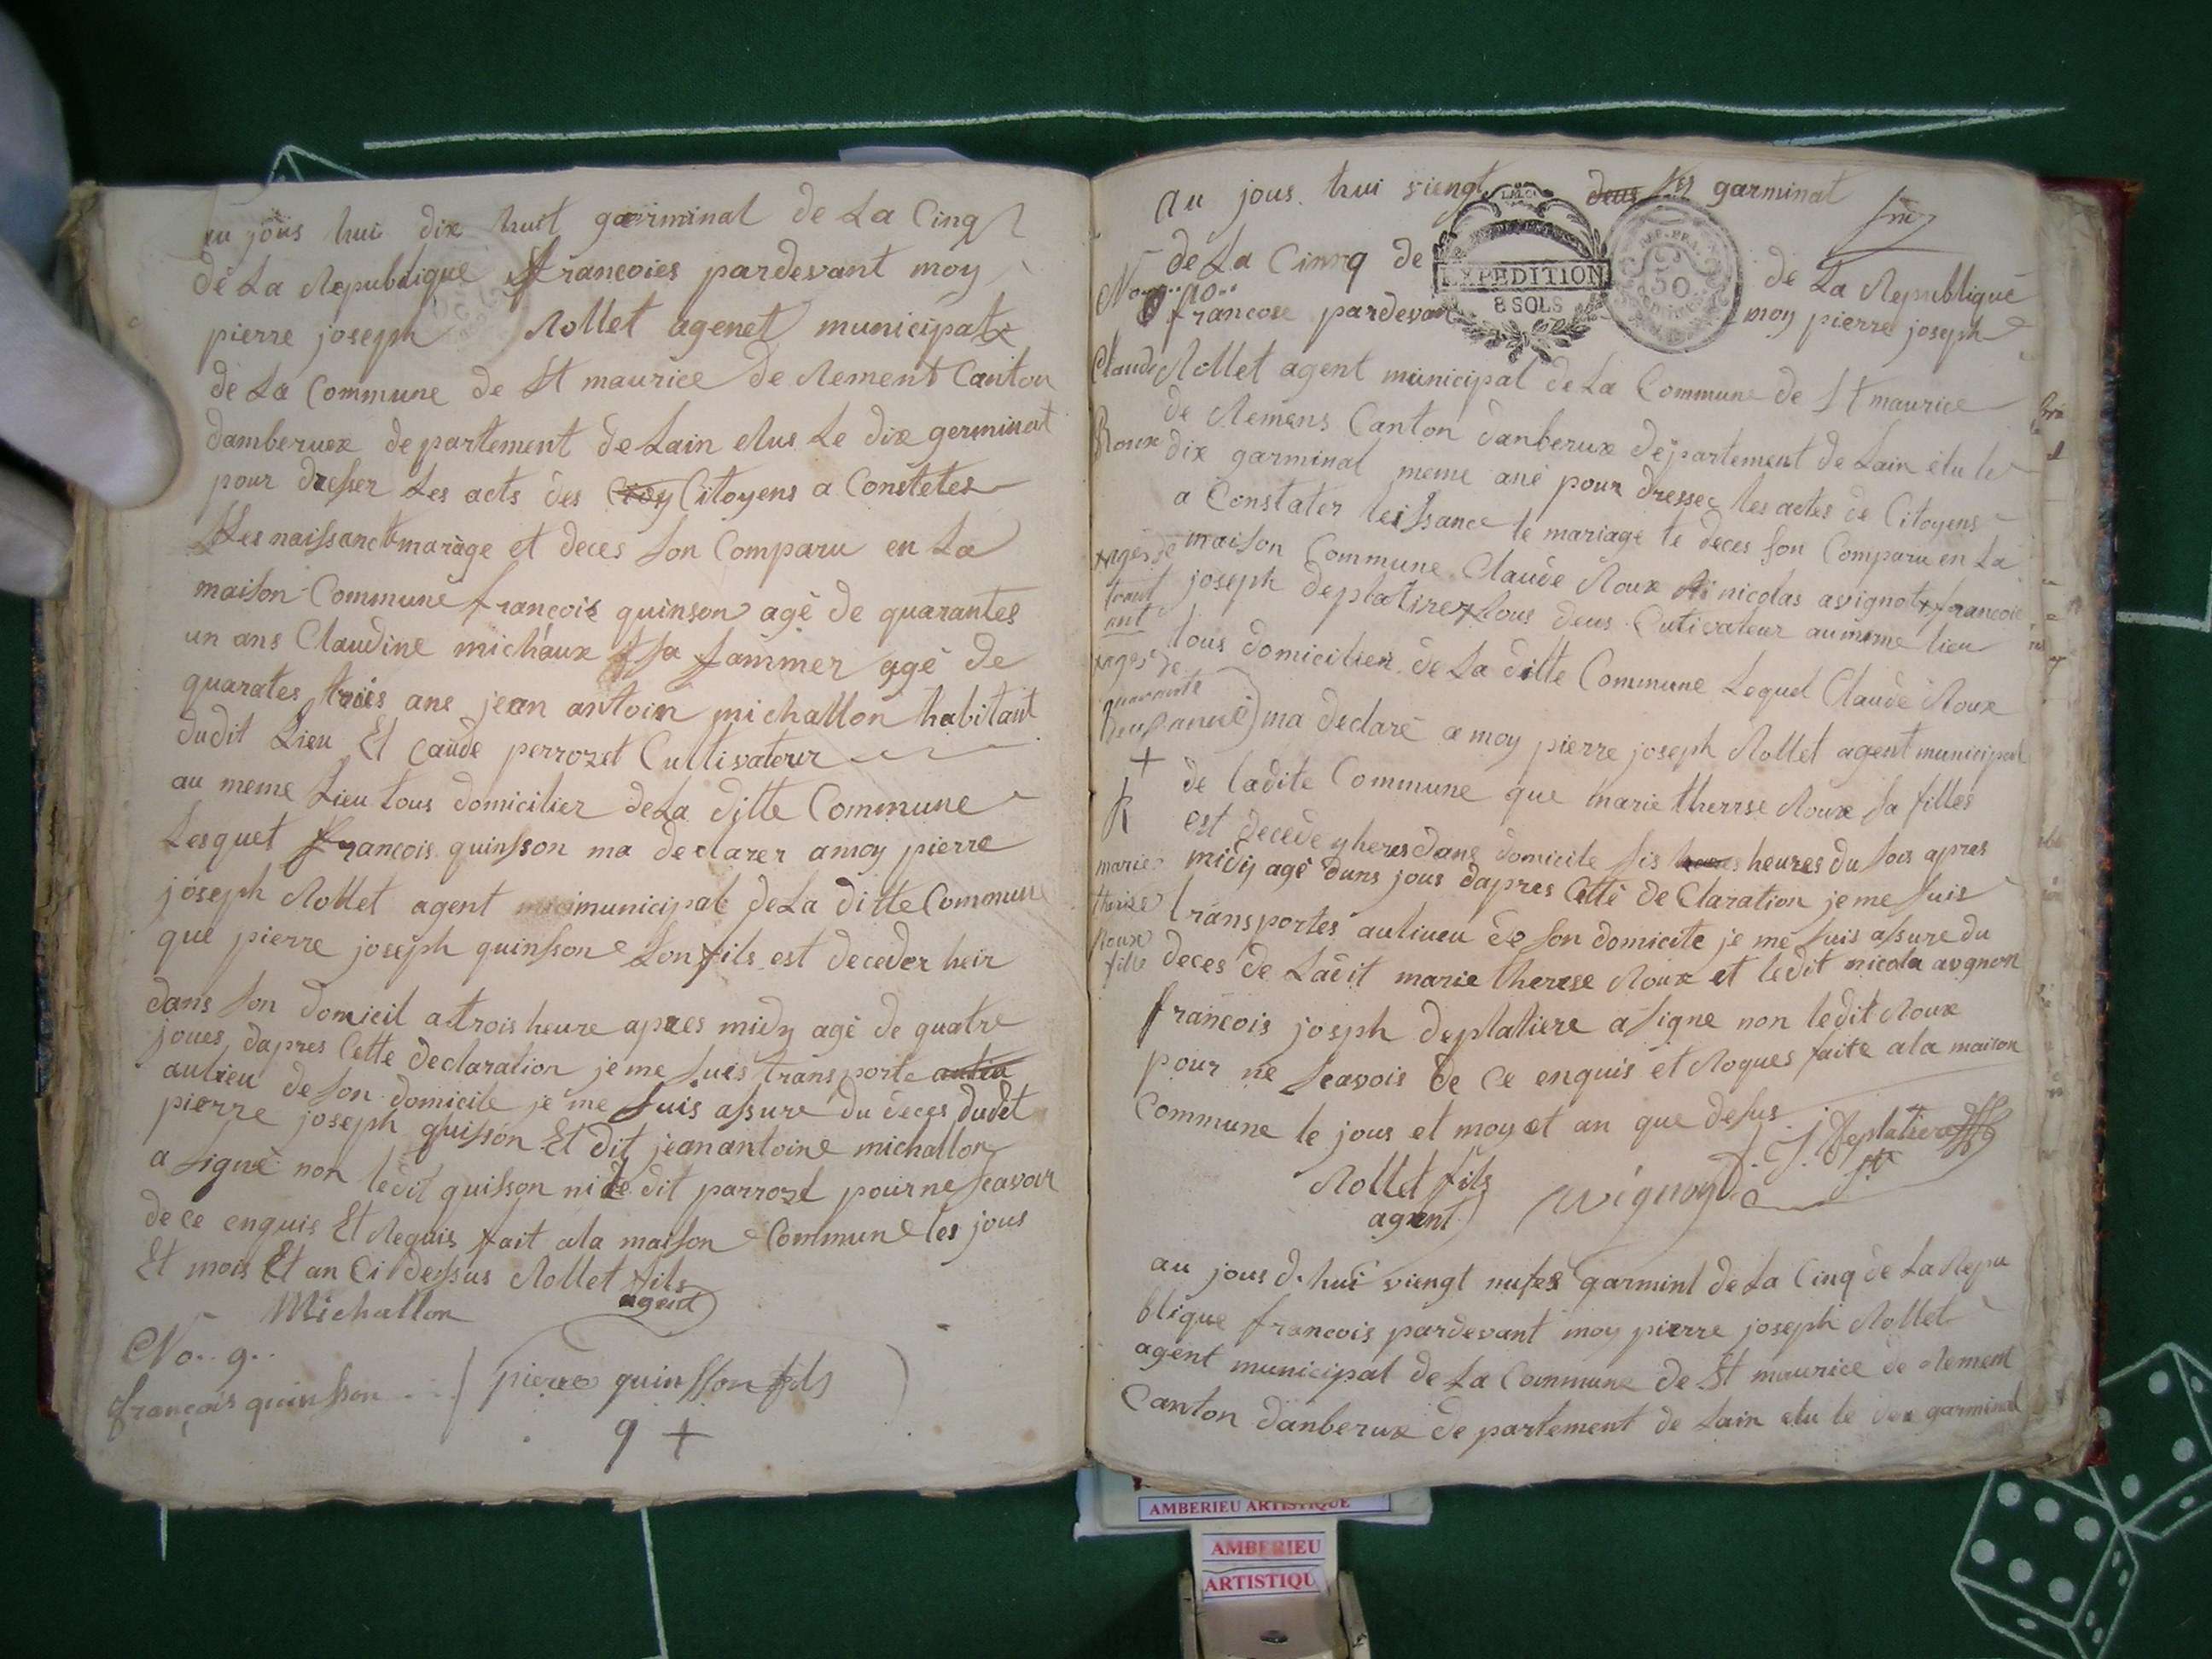 au jous hui dix huit garminal de La Cinq
de La Republique francoies pardevant moy
pierre joseph Rollet agenet municipal
de La Commune de St maurice de Rement Canton
damberuex departement de Lain elus Le dix germinal
pour dresser Les acts des Citoyens a Constetes
Les naissanct marage et deces son Comparu en La
maison Commune françois quinson agé de quarantes
un ans Claudine michaux sa fammer agé de
quarates trois ans jean antoin michallon habitant
dudit Lieu Et Caude perrozet Cultivateur
au meme Lieu tous domicilier deLa ditte Commune
Lesquet francois quinsson ma declarer amoy pierre
joseph Rollet agent municipal deLa ditte Commune
que pierre joseph quinsson Son fils est deceder heir
dans son domicil a trois heure apres midy agé de quatre
joues, dapres Cette declaration je me suis transporte
aulieu de son domicile je me suis assure du deces dudit
pierre joseph quisson Et dit jean antoine michallon
a signé non ledit quisson ni le dit parrozet pour ne seavoir
de ce enquis Et Requis fait ala maison Commune les jous
Et mois Et an Ci Dessus Rollet fils
agent
Michallon
No.. 9..
françois quinsson
pierre quinsson fils
9 +
au jous hui viengt deus six garminal
de La Cinnq de de La Republique
No 10..
EXPEDITION
8 SOLS
REP. FRA.
50
CENTIMES
francose pardevant moy pierre joseph
Claude Rollet agent municipal de La Commune de St maurice
de Remens Canton danberux departement de Lain élu le
Roux dix garminal meme ané pour dresser les actes de Citoyens
a Constater leissance le mariage te deces son Comparu en La
maison Commune Claude Roux nicolas avignot francoie
joseph deplatirer tous deus Cutivateur aumeme lieu
tous domicilier de La ditte Commune Lequel Claude Roux
agés de
trant
agés de
quarante
ma declaré a moy pierre joseph Rollet agent municipal
+
de ladite Commune que marie therrse Roux sa filles
est decede yheres dans domicile sis heures du sois apres
midiy agé duns jous dapres Cette deClaration je me suis
marie
therese
Roux
fille
transportes auliueu de son domicite je me suis assure du
deces de Ladit marie therese Roux et ledit nicola avgnon
françois josph deplatiere a signe non ledit Roux
pour ne seavois de Ce enquis et Roques faite ala maison
Commune le jous et moy et an que desus
Rollet fils
agent
avignon
J. J. Deplatiere
au jous d. hui viengt nufes garminl deLa Cinq de La Repu
blique francois pardevant moy pierre joseph Rollet
agent municipal de La Commune de St maurice de Rement
Canton danberux departement de Lain elu le dix garminal
AMBERIEU ARTISTIQUE
AMBERIEU
ARTISTIQU